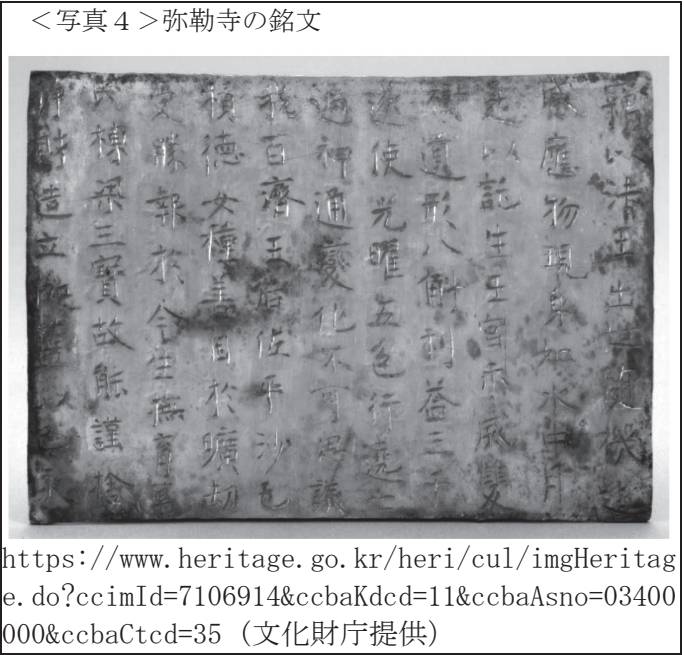 <写真４>弥勒寺の銘文
竊以法王出世隨機赴
感應物現身如水中月
是以託生王宮示滅雙
樹遺形八斛利益三千
遂使光曜五色行遶七
遍神通變化不可思議
我百濟王后佐平沙乇
積德女種善因於曠劫
受勝報於今生撫育萬
民棟梁三寶故能謹捨
淨財造立伽藍以己亥
https://www.heritage.go.kr/heri/cul/imgHeritag
e.do?ccimId=7106914&ccbaKdcd=11&ccbaAsno=03400
000&ccbaCtcd=35（文化財庁提供）